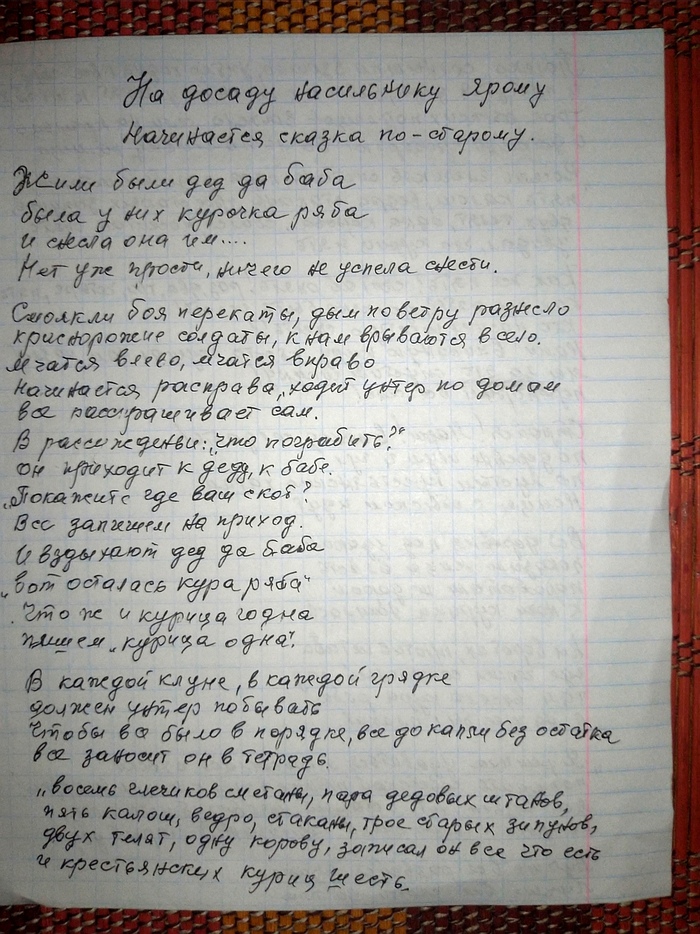 На досаду насильнику ярому
Начинается сказка по-старому.
Жили были дед да баба
была у них курочка ряба
и снесла она им....
Нет уж прости, ничего не успела снести.
Смолкли боя перекаты, дым по ветру разнесло
криворожие солдаты, к нам врываются в село.
мчатся влево, мчатся вправо
начинается расправа, ходит унтер по домам
все расспрашивает сам.
В рассуждении: „что пограбить?"
он приходит к деду, к бабе.
„Покажите где ваш скот?
Все запишем на приход.
И вздыхают дед да баба
„вот осталась кура ряба"
Что ж и курица годна
пишем „курица одна".
В каждой клуне, в каждой грядке
должен унтер побывать
Чтобы все было в порядке, все до капли без остатка
все заносит он в тетрадь.
„восемь глечиков сметаны, пара дедовых штанов,
пять калош, ведро, стаканы, трое старых зипунов,
двух телят, одну корову, записал он все что есть
и крестьянских куриц шесть.